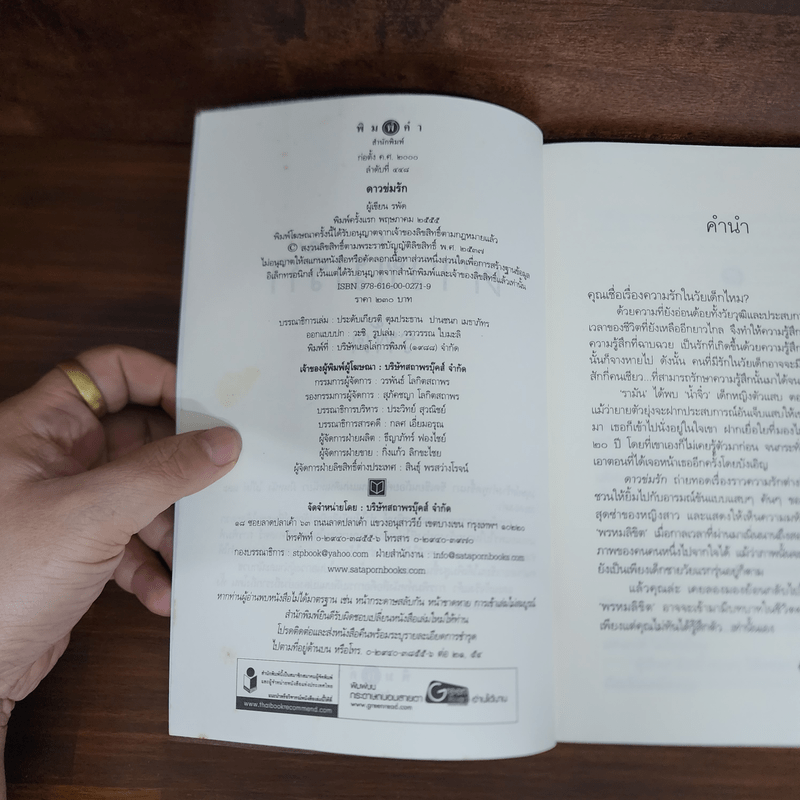 พิมพ์คำ
สำนักพิมพ์
ก่อตั้ง ค.ศ. ๒๐๐๐
ลำดับที่ ๔๔๘
ดาวข่มรัก
ผู้เขียน รพัด
พิมพ์ครั้งแรก พฤษภาคม ๒๕๕๕
พิมพ์โฆษณาครั้งนี้ได้รับอนุญาตจากเจ้าของลิขสิทธิ์ตามกฎหมายแล้ว
© สงวนลิขสิทธิ์ตามพระราชบัญญัติลิขสิทธิ์ พ.ศ. ๒๕๓๗
ไม่อนุญาตให้สแกนหนังสือหรือคัดลอกเนื้อหาส่วนหนึ่งส่วนใดเพื่อการสร้างฐานข้อมูล
อิเล็กทรอนิกส์ เว้นแต่ได้รับอนุญาตจากสำนักพิมพ์และเจ้าของลิขสิทธิ์แล้วเท่านั้น
ISBN 978-616-00-0271-9
ราคา ๒๓๐ บาท
บรรณาธิการเล่ม : ประดับเกียรติ ตุมประธาน ปานชนก เมธาภัทร
ออกแบบปก : วะชิ รูปเล่ม : วราวรรณ ใบมะลิ
พิมพ์ที่ : บริษัทเยลโล่การพิมพ์ (๑๙๘๘) จำกัด
เจ้าของผู้พิมพ์ผู้โฆษณา : บริษัทสถาพรบุ๊คส์ จำกัด
กรรมการผู้จัดการ : วรพันธ์ โลกิตสถาพร
รองกรรมการผู้จัดการ : สุภัคชญา โลกิตสถาพร
บรรณาธิการบริหาร : ประวิทย์ สุวณิชย์
บรรณาธิการสารคดี : กลศ เอี่ยมอรุณ
ผู้จัดการฝ่ายผลิต : ธีญาภัทร์ ฟองไชย์
ผู้จัดการฝ่ายขาย : กิ่งแก้ว ลิกขะไชย
ผู้จัดการฝ่ายลิขสิทธิ์ต่างประเทศ : สินธุ์ พรสว่างโรจน์
จัดจำหน่ายโดย : บริษัทสถาพรบุ๊คส์ จำกัด
๑๘ ซอยลาดปลาเค้า ๖๓ ถนนลาดปลาเค้า แขวงอนุสาวรีย์ เขตบางเขน กรุงเทพฯ ๑๐๒๒๐
โทรศัพท์ ๐-๒๙๔๐-๓๘๕๕-๖ โทรสาร ๐-๒๙๔๐-๓๙๗๐
กองบรรณาธิการ : stpbook@yahoo.com ฝ่ายสำนักงาน : info@satapornbooks.com
www.satapornbooks.com
หากท่านผู้อ่านพบหนังสือไม่ได้มาตรฐาน เช่น หน้ากระดาษสลับกัน หน้าขาดหาย การเข้าเล่มไม่สมบูรณ์
สำนักพิมพ์ยินดีรับผิดชอบเปลี่ยนหนังสือเล่มใหม่ให้ท่าน
โปรดติดต่อและส่งหนังสือคืนพร้อมระบุรายละเอียดการชำรุด
ไปตามที่อยู่ด้านบน หรือโทร. ๐-๒๙๔๐-๓๘๕๕-๖ ต่อ ๒๑, ๕๔
สำนักพิมพ์นี้เป็นสมาชิกสมาคมผู้จัดพิมพ์
และผู้จำหน่ายหนังสือแห่งประเทศไทย
www.thaibookrecommend.com
พิมพ์บน
กระดาษถนอมสายตา
อ่านได้นาน
www.greenread.com
คำนำ
คุณเชื่อเรื่องความรักในวัยเด็กไหม?
ด้วยความที่ยังอ่อนด้อยทั้งวัยวุฒิและประสบกา
เวลาของชีวิตที่ยังเหลืออีกยาวไกล จึงทำให้ความรู้สึก
ความรู้สึกที่ฉาบฉวย เป็นรักที่เกิดขึ้นด้วยความรู้สึก
นั้นก็จางหายไป ดังนั้น คนที่มีรักในวัยเด็กอาจจะมี
สักกี่คนเชียว...ที่สามารถรักษาความรู้สึกนั้นมาได้จน
'รามัน' ได้พบ 'น้ำจิ๋ว' เด็กหญิงตัวแสบ ตอ
แม้ว่ายายตัวยุ่งจะฝากประสบการณ์อันเจ็บแสบให้เ
มา เธอก็เข้าไปนั่งอยู่ในใจเขา ฝากเยื่อใยที่มองไม่
๒๐ ปี โดยที่เขาเองก็ไม่เคยรู้ตัวมาก่อน จนกระทั่ง
เอาตอนที่ได้เจอหน้าเธออีกครั้งโดยบังเอิญ
ดาวข่มรัก ถ่ายทอดเรื่องราวความรักต่าง
ชวนให้ยิ้มไปกับอารมณ์ขันแบบแสบๆ คันๆ ขอ
สุดซ่าของหญิงสาว และแสดงให้เห็นความหมั
'พรหมลิขิต' เมื่อกาลเวลาที่ผ่านมาเนิ่นนานถึงสอ
ภาพของคนคนหนึ่งไปจากใจได้ แม้ว่าภาพนั้นจะ
ยังเป็นเพียงเด็กชายวัยแรกรุ่นอยู่ก็ตาม
แล้วคุณล่ะ เคยลองมองย้อนกลับไป
'พรหมลิขิต' อาจจะเข้ามามีบทบาทในชีวิต
เพียงแต่คุณไม่ทันได้รู้สึกตัว เท่านั้นเอง